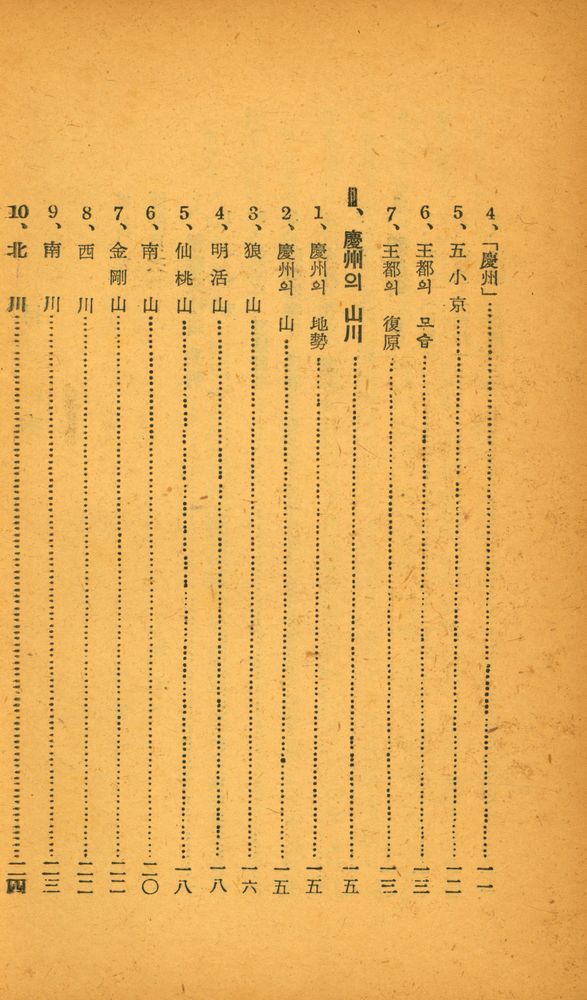 4、「慶州」……………一一
5、五小京……………一二
6、王都의 모습……………一三
7、王都의 復原……………一三
Ⅱ、慶州의 山川……………一五
1、慶州의 地勢……………一五
2、慶州의 山……………一五
3、狼山……………一六
4、明活山……………一八
5、仙桃山……………一八
6、南山……………二〇
7、金剛山……………二二
8、西川……………二二
9、南川……………二三
10、北川……………二四